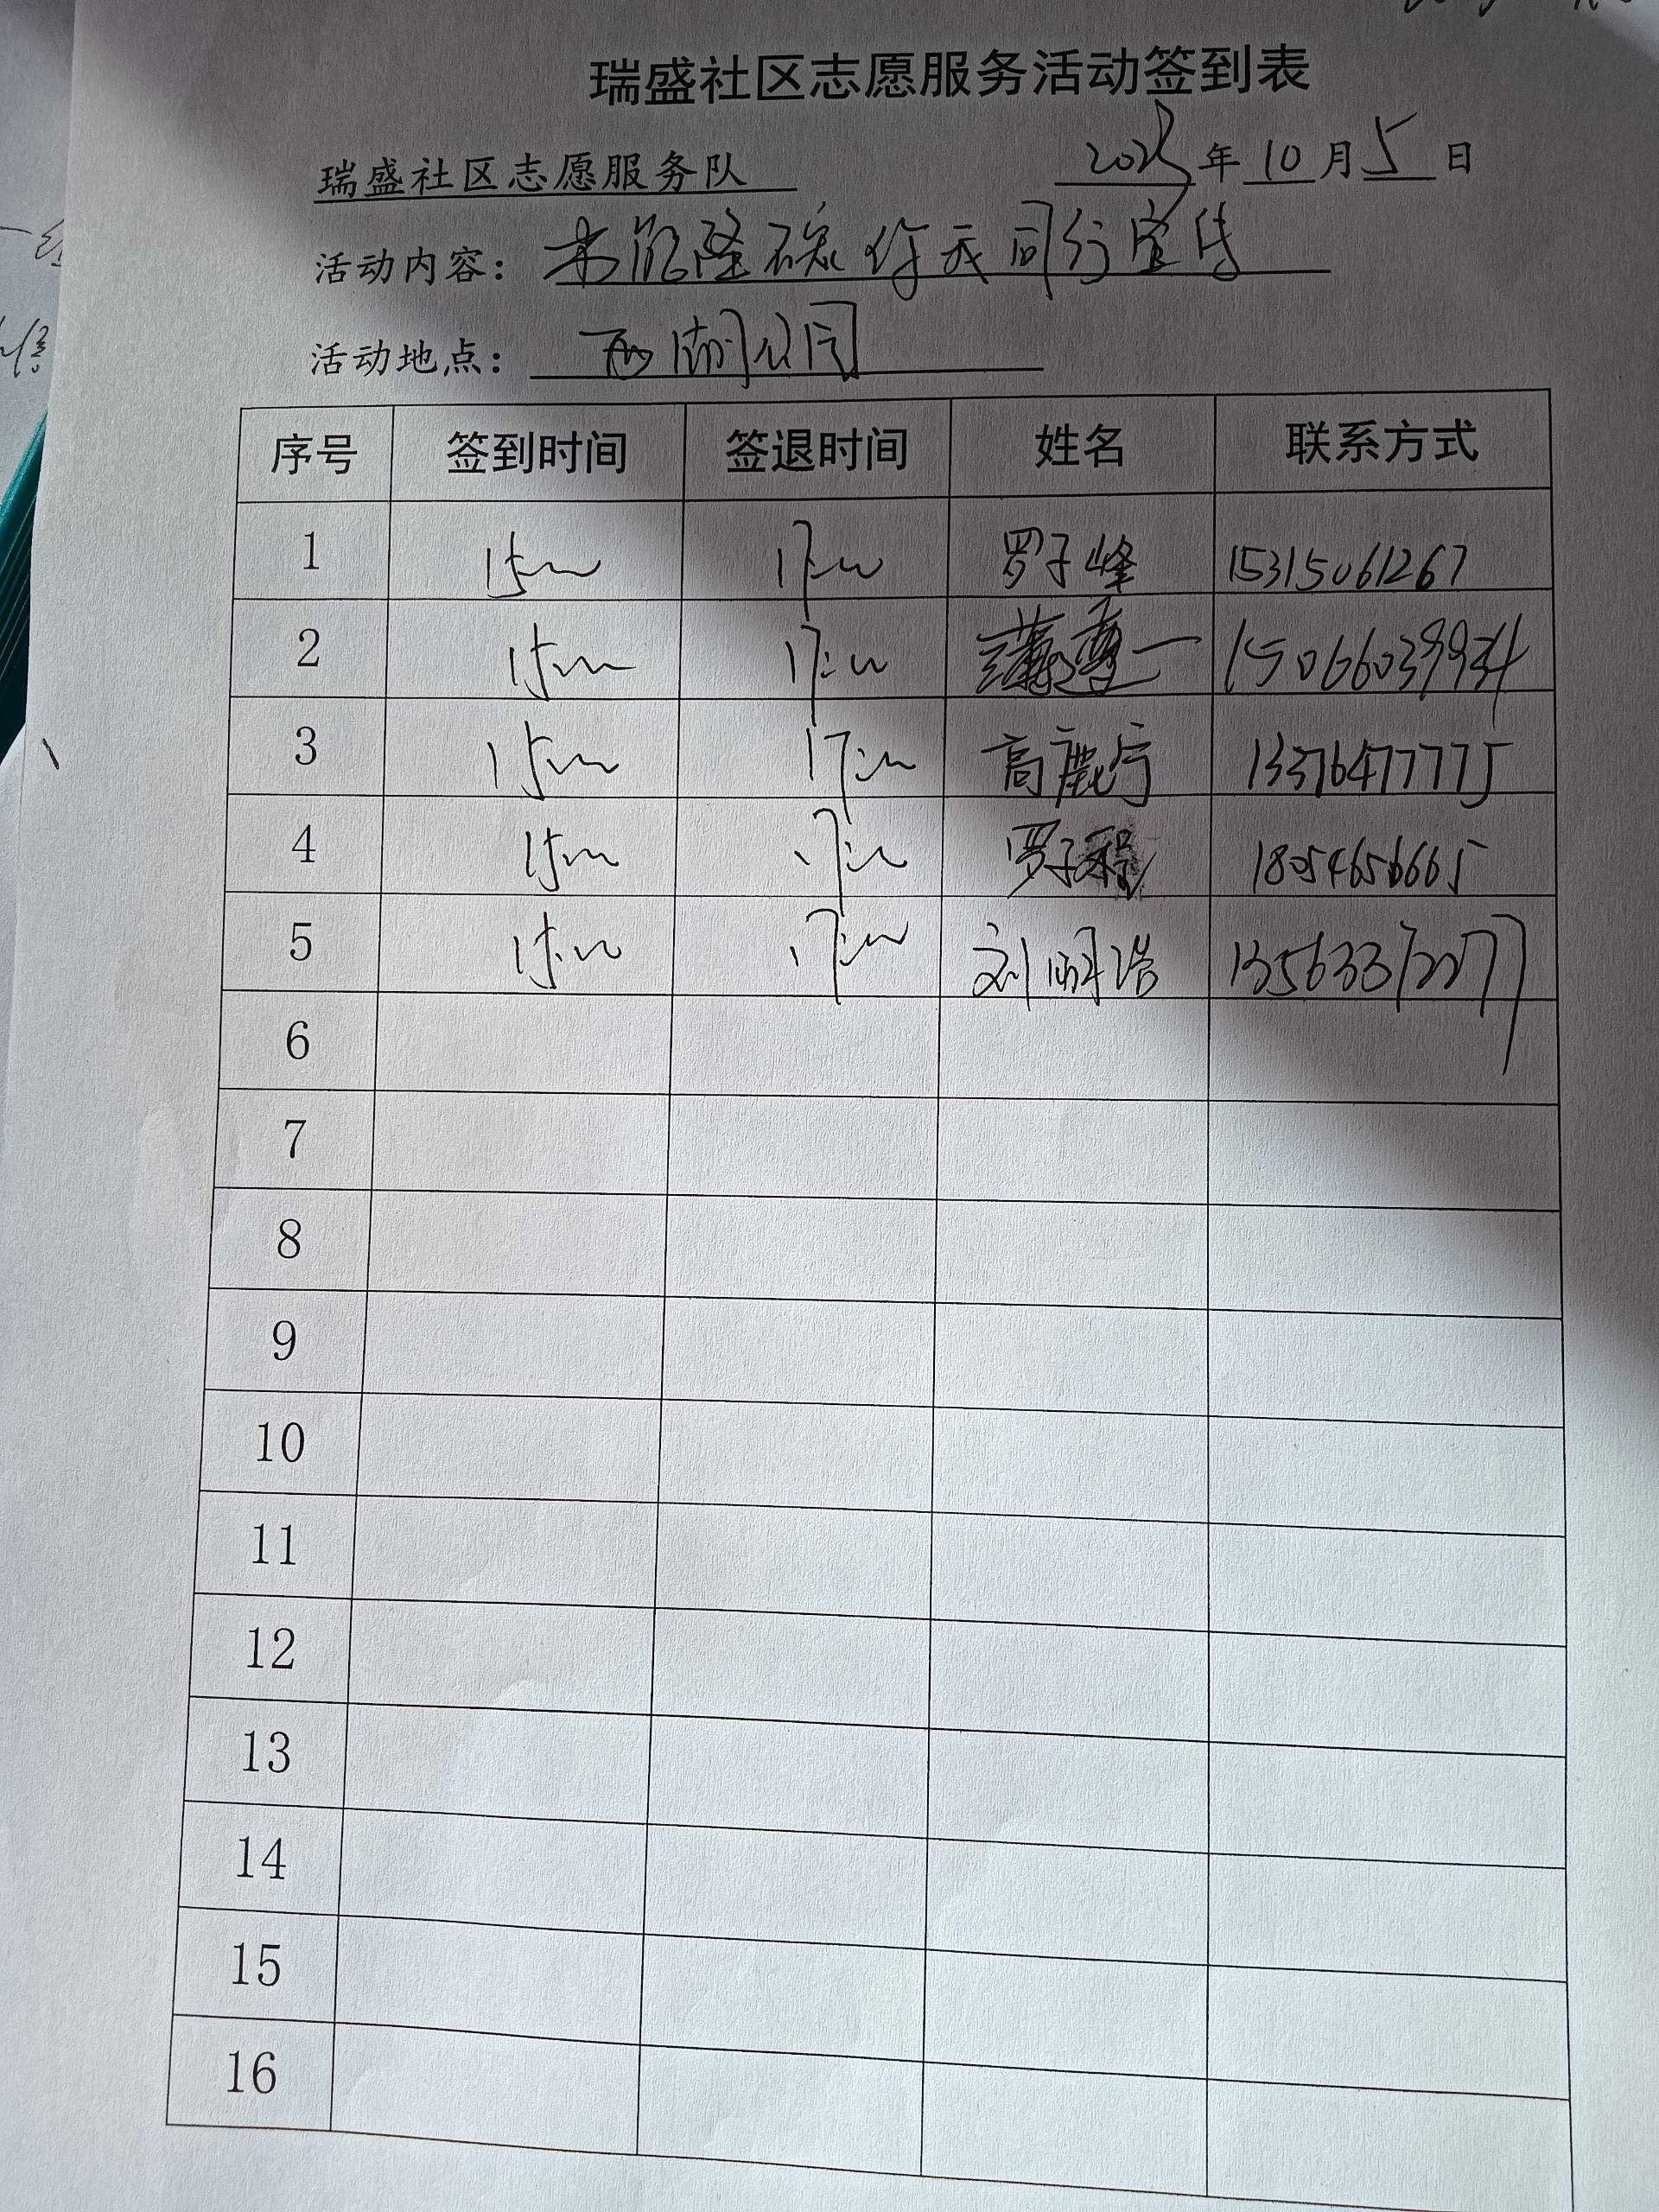 瑞盛社区志愿服务活动签到表
瑞盛社区志愿服务队 2025年10月5日
活动内容：节能降碳你我同行宣传
活动地点：西湖公园
序号 签到时间 签退时间 姓名 联系方式
1 15:00 17:00 罗子峰 15315061267
2 15:00 17:00
3 15:00 17:00 高鹿宁 13376477775
4 15:00 17:00 罗子程 18054656665
5 15:00 17:00 刘明浩
6
7
8
9
10
11
12
13
14
15
16